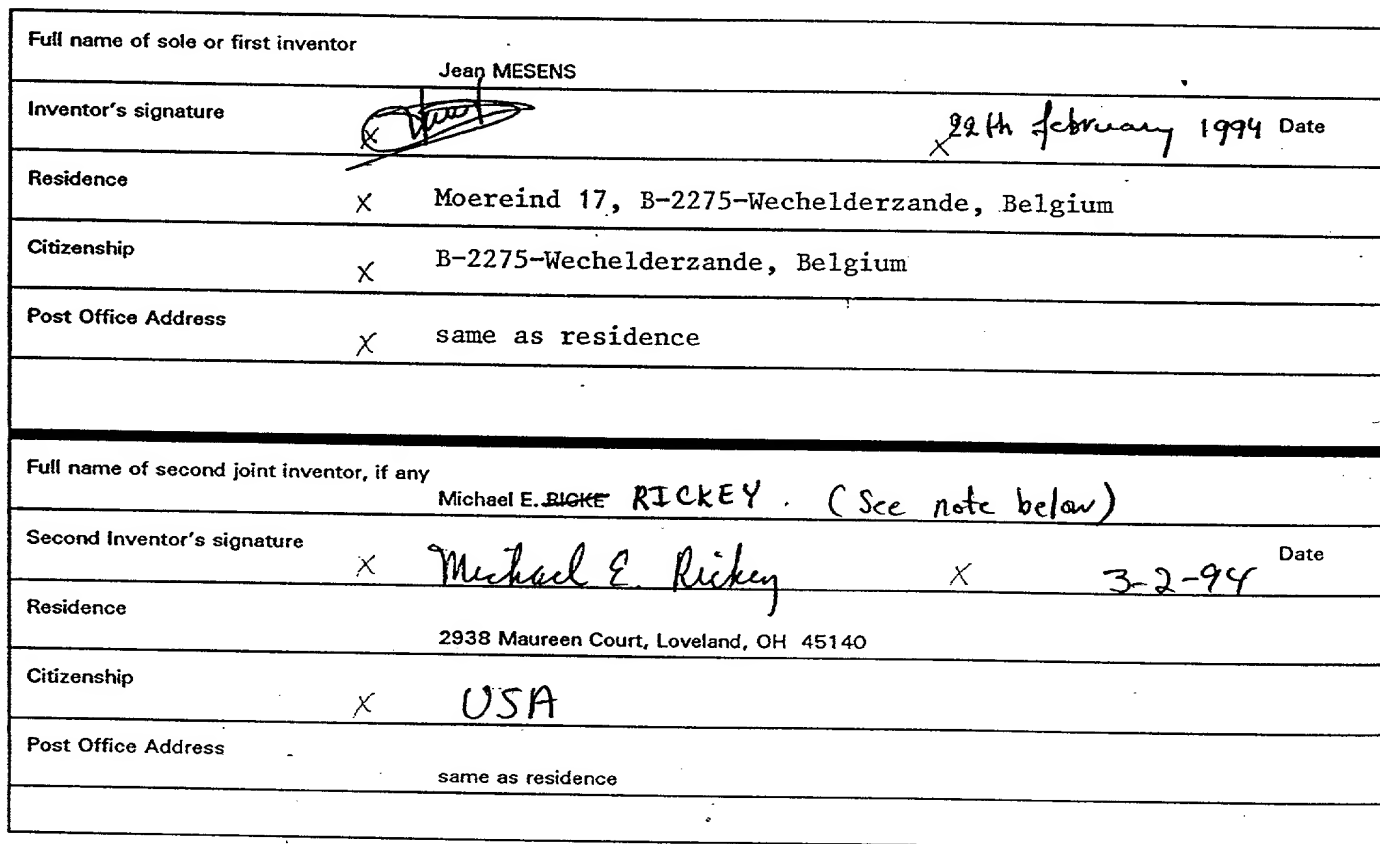 Full name of sole or first inventor
Jean MESENS
Inventor's signature X X 22th february 1994 Date
Residence X Moereind 17, B-2275-Wechelderzande, Belgium
Citizenship X B-2275-Wechelderzande, Belgium
Post Office Address X same as residence
Full name of second joint inventor, if any
Michael E. RICKE RICKEY. (See note below)
Second Inventor's signature X Michael E. Rickey X 3-2-94 Date
Residence
2938 Maureen Court, Loveland, OH 45140
Citizenship X USA
Post Office Address
same as residence